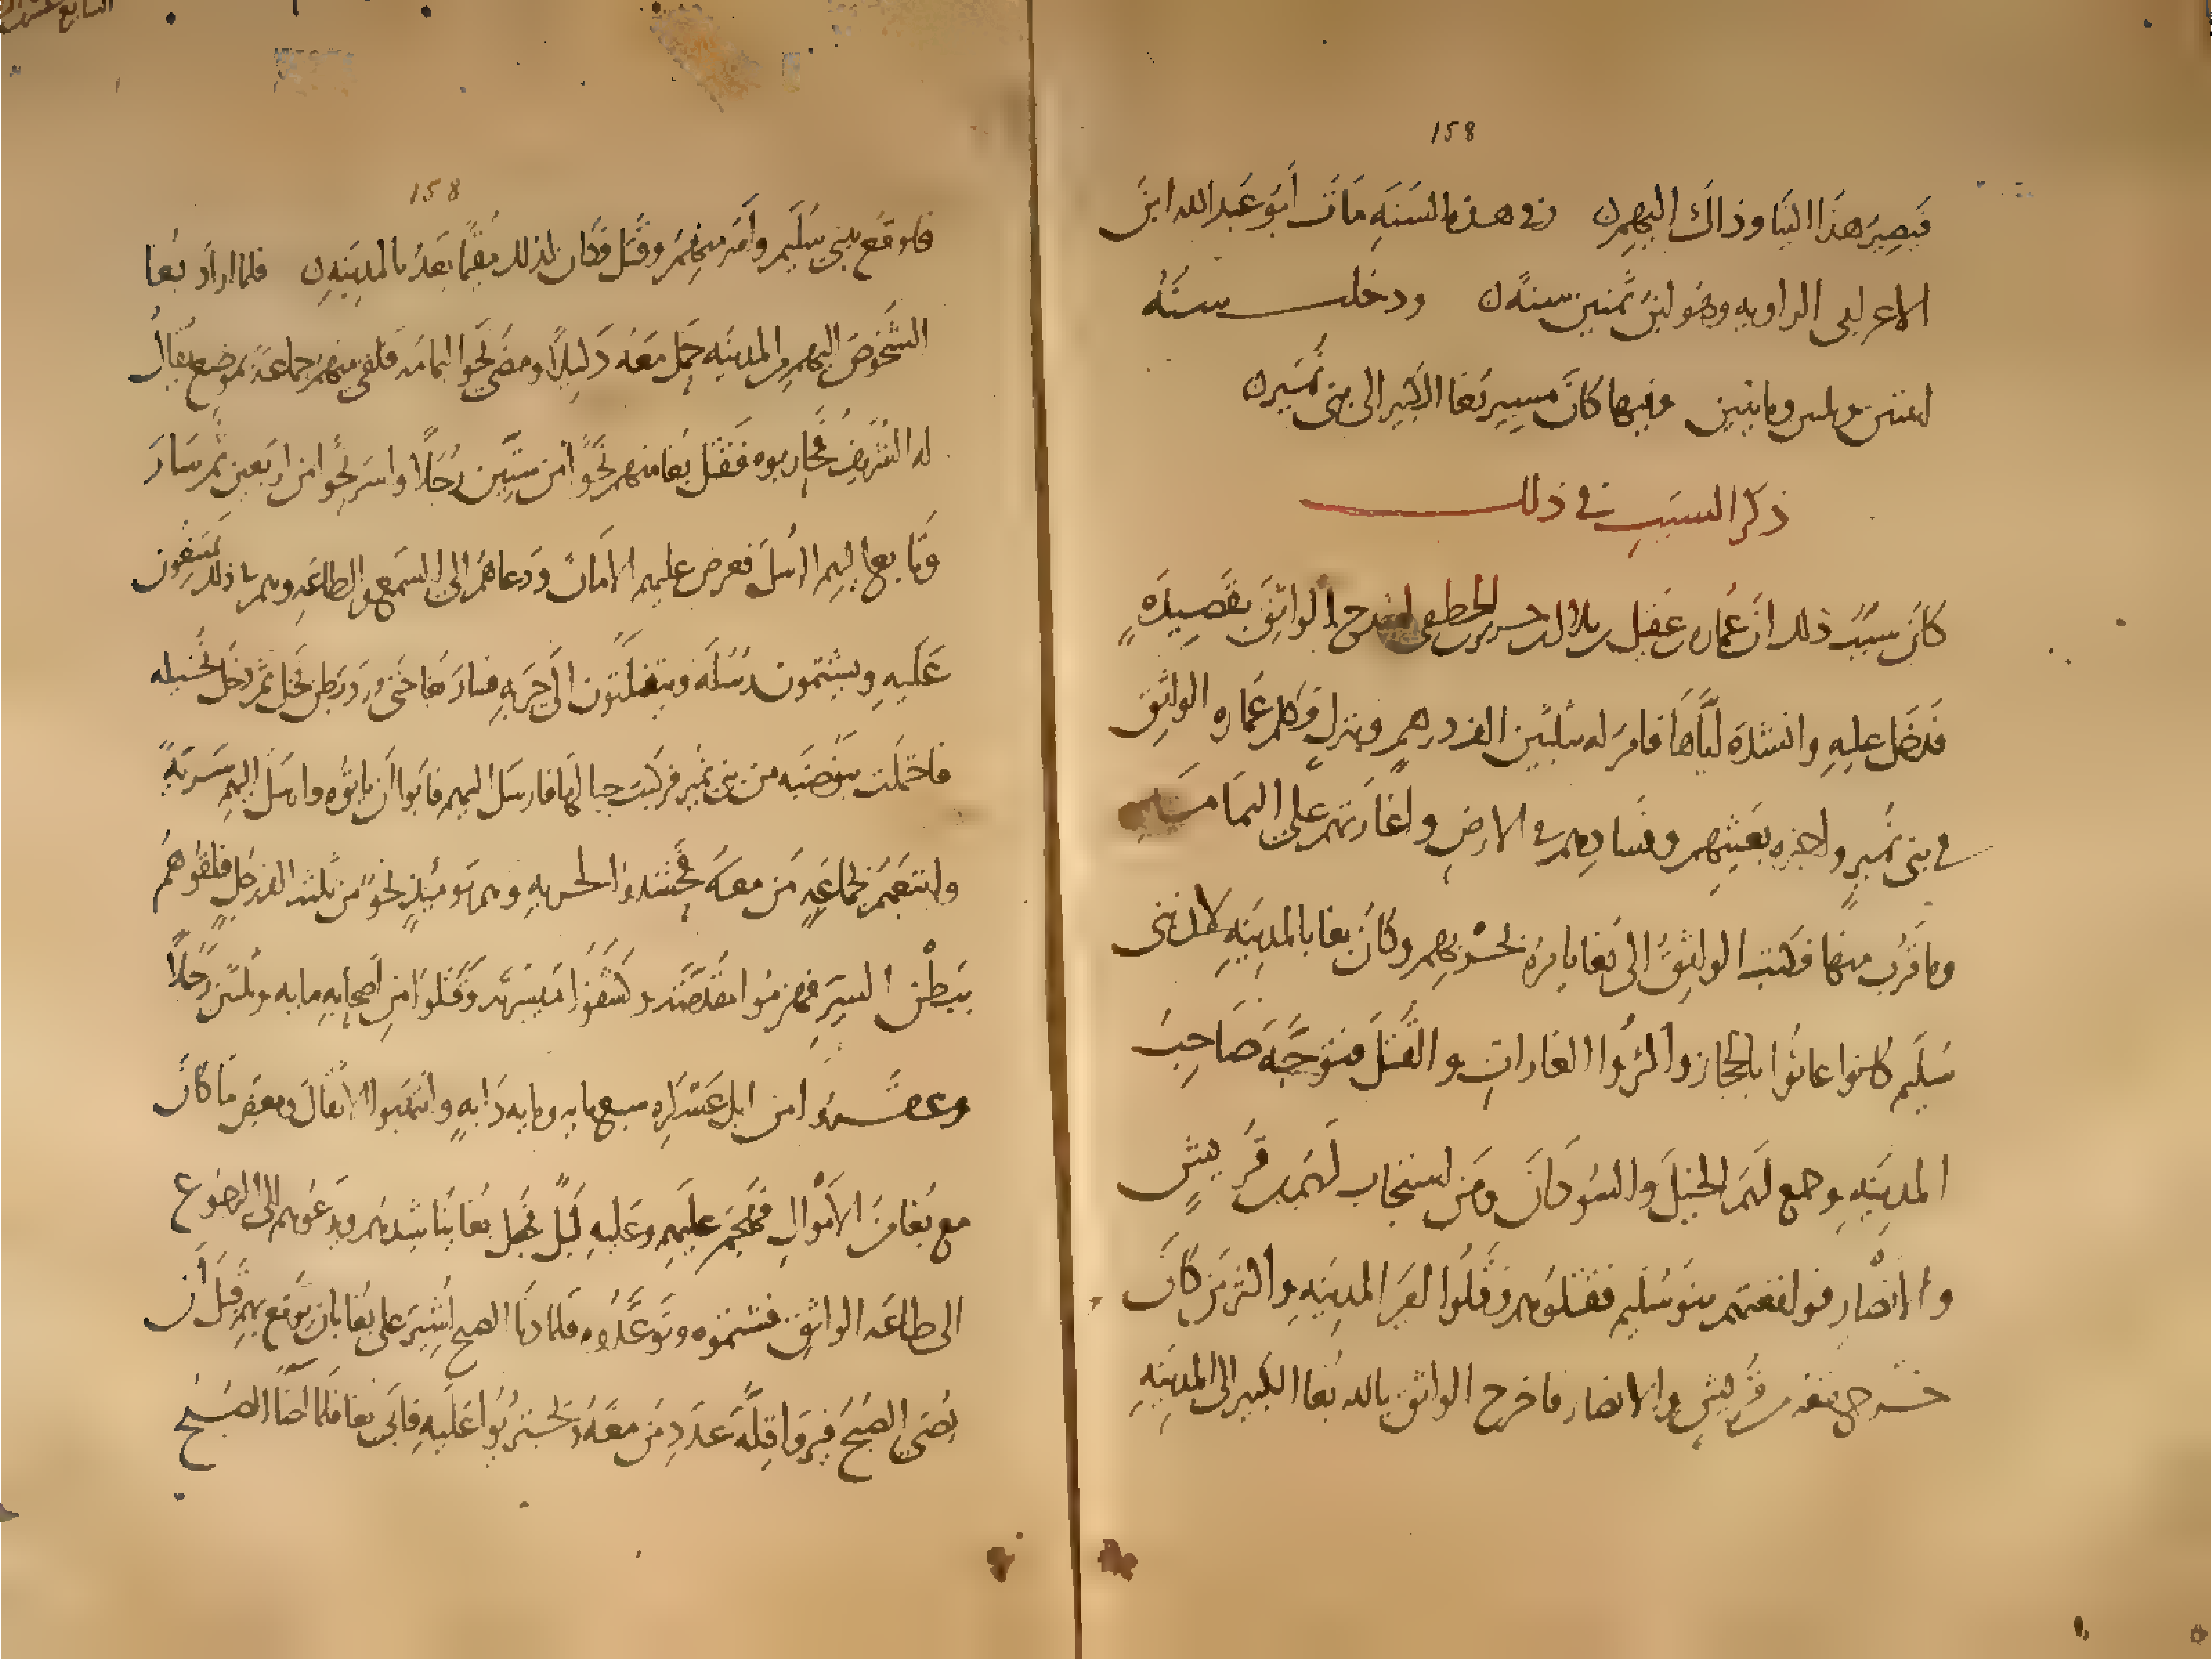 158
فيصير هذا الينا وذاك اليهم وفي هذه السنه مات أبو عبد الله ابن
الاعرابي الراويه وهو ابن ثمنين سنة ودخلت سنة
اثنتين وثلثين ومايتين وفيها كان مسير بغا الكبير الى بني نمير
ذكر السبب في ذلك
كان سبب ذلك ان عماره بن عقيل بن بلال بن جرير بن الخطفى امتدح الواثق بقصيدة
فدخل عليه وانشده اياها فامر له بثلثين الف درهم وبنزل فكلم عماره الواثق
في بني نمير واخبره بعيثهم وفسادهم في الارض واغارتهم على اليمامة
وما قرب منها فكتب الواثق الى بغا يامره بحربهم وكان بغا بالمدينه لان بني
سليم كانوا عاثوا بالحجاز واكثروا الغارات والقتل فتوجه صاحب
المدينه وجمع لهم الخيل والسودان ومن استجاب لهم من قريش
والانصار فواقعتهم بنو سليم فقتلوهم وقتلوا امير المدينه واكثر من كان
خرج معه من قريش والانصار فاخرج الواثق بالله بغا الكبير الى المدينه
158
فاوقع ببني سليم وأسر منهم وقتل فكان لذلك مقيما بعد بالمدينه فلما اراد بغا
الشخوص اليهم من المدينه حمل معه دليلا ومضى نحو اليمامه فلقي منهم جماعة بموضع يقال
له الشريف فحاربوه فقتل بغا منهم نحوا من ستين رجلا واسر نحوا من اربعين ثم سار
وتابع اليهم الرسل فعرض عليهم الامان ودعاهم الى السمع والطاعه وهم بذلك يمتنعون
عليه ويشتمون رسله ويتفلتون الى حربه فسار بغا حتى ورد بطن نخل ثم دخل نخيله
فاحتملت بنو ضبه من بني نمير فركبت جبالها فارسل اليهم فابوا ان ياتوه وارسل اليهم سرية
واتبعهم بجماعة من معه فحشدوا لحربه وهم يوميذ نحو من ثلثه الف رجل فلقوهم
ببطن السر فهزموا مقدمته وكشفوا ميسرته وقتلوا من أصحابه مايه وثلثين رجلا
وعقروا من ابل عسكره سبع مايه ومايه دابه وانتهبوا الاثقال وبعض ما كان
مع بغا من الاموال فهجم عليهم وعليه ليل فجعل بغا يناشدهم ويدعوهم الى الرجوع
الى طاعه الواثق فشتموه وتوعدوه فلما دنا الصبح اشير على بغا بان يوقع بهم قبل ان
يضي الصبح فيروا قلة عدد من معه فيجتريوا عليه فابى بغا فلما اضا الصبح